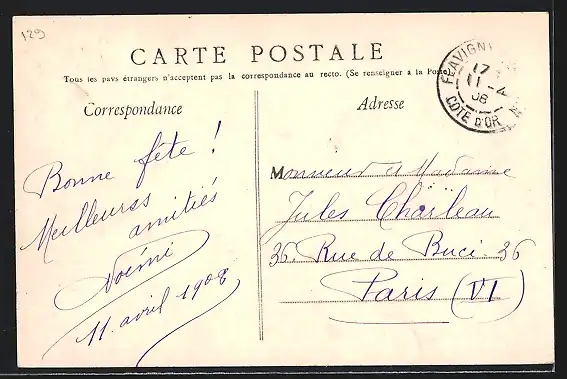 129
CARTE POSTALE
Tous les pays étrangers n'acceptent pas la correspondance au recto. (Se renseigner à la Poste)
Correspondance
Adresse
FLAVIGNY
17
11 - 4
08
COTE D'OR
Bonne fête !
Meilleures
amitiés
Noémi
11 avril 1908
Monsieur et Madame
Jules
36. Rue de Buci. 36
Paris (VI)